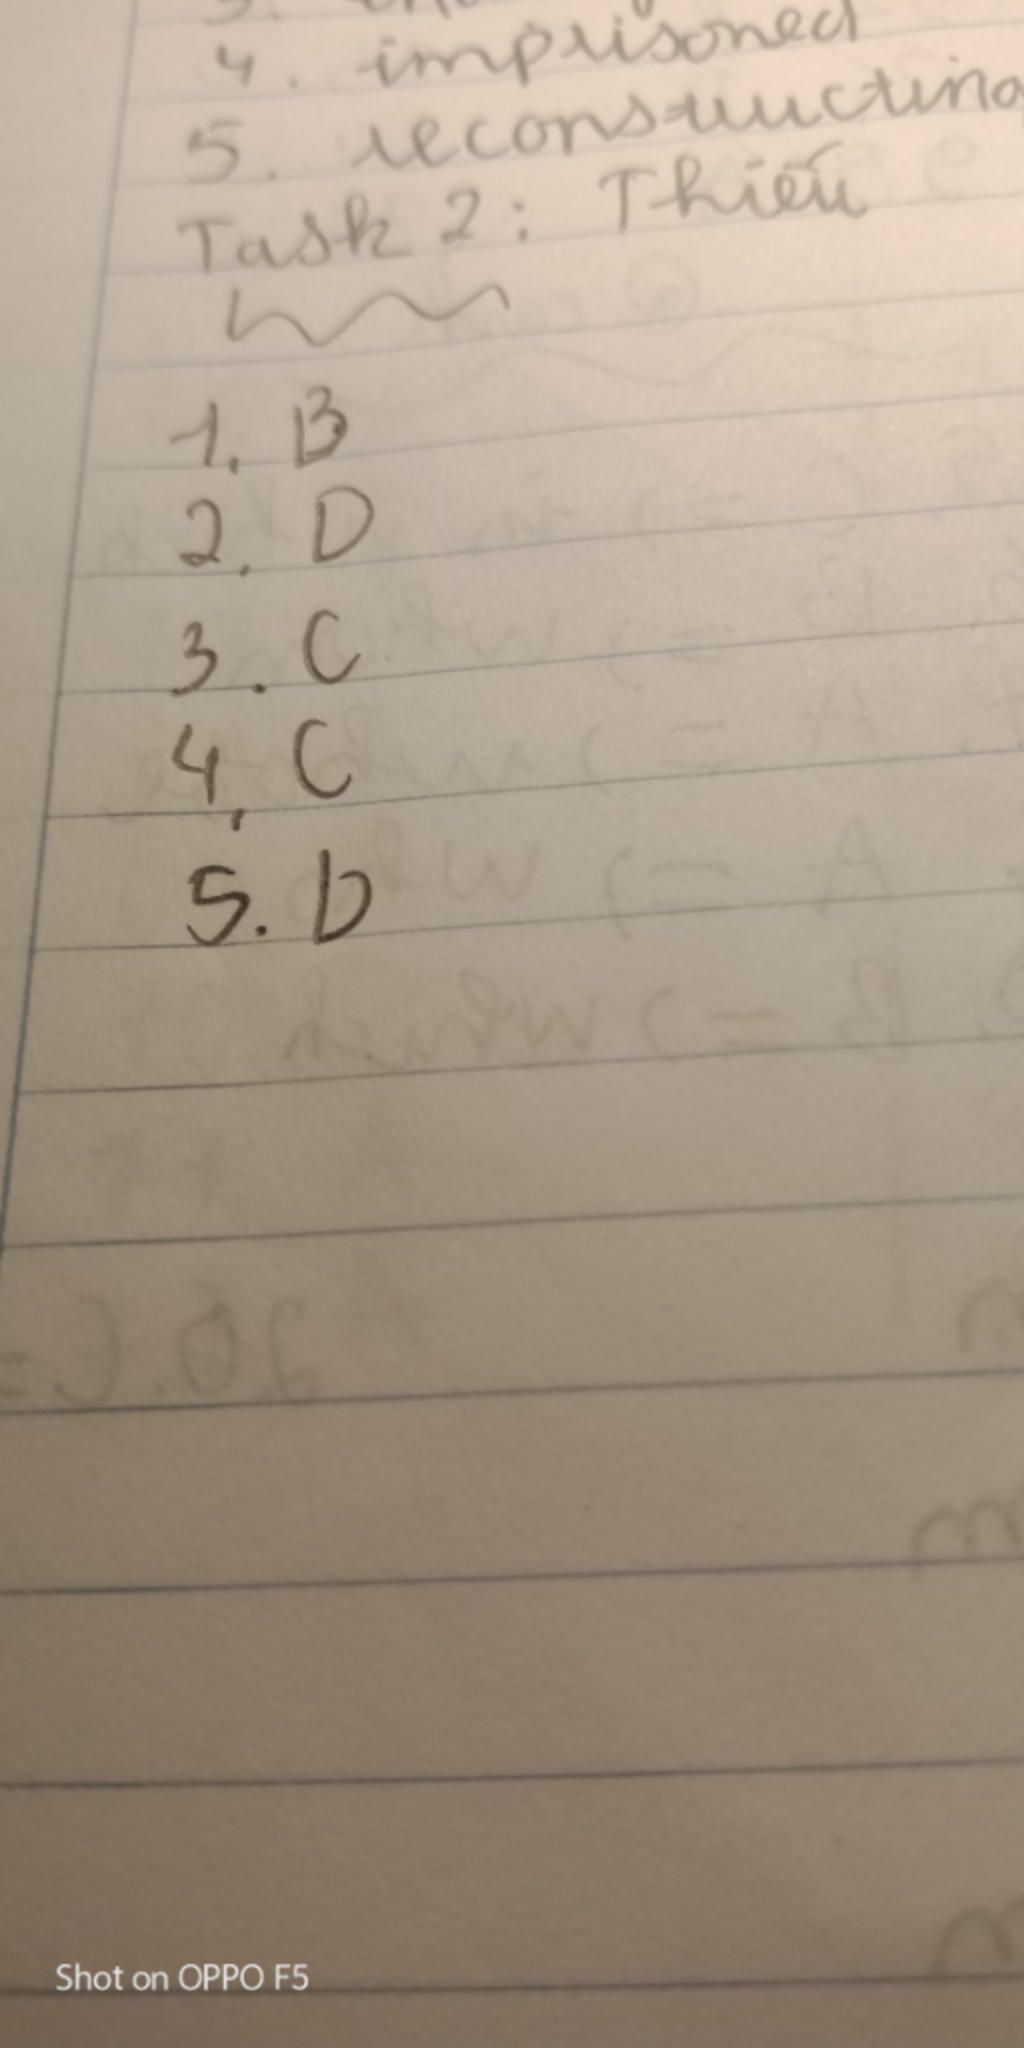 4. imprisoned
5. reconstructing
Task 2: Thiếu
1. B
2. D
3. C
4. C
5. D
Shot on OPPO F5